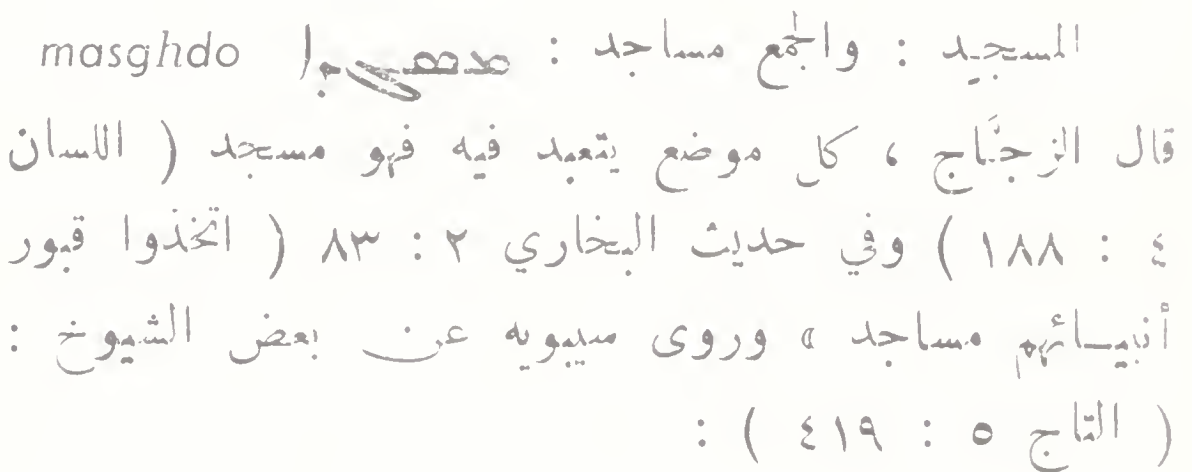 المسجيد : والجمع مساجد : ܡܣܓܕܐ masghdo
قال الزجّاج ، كل موضع يتعبد فيه فهو مسجد ( اللسان
٤ : ١٨٨ ) وفي حديث البخاري ٢ : ٨٣ ( اتخذوا قبور
أنبيائهم مساجد » وروى سيبويه عن بعض الشيوخ :
( التاج ٥ : ٤١٩ ) :